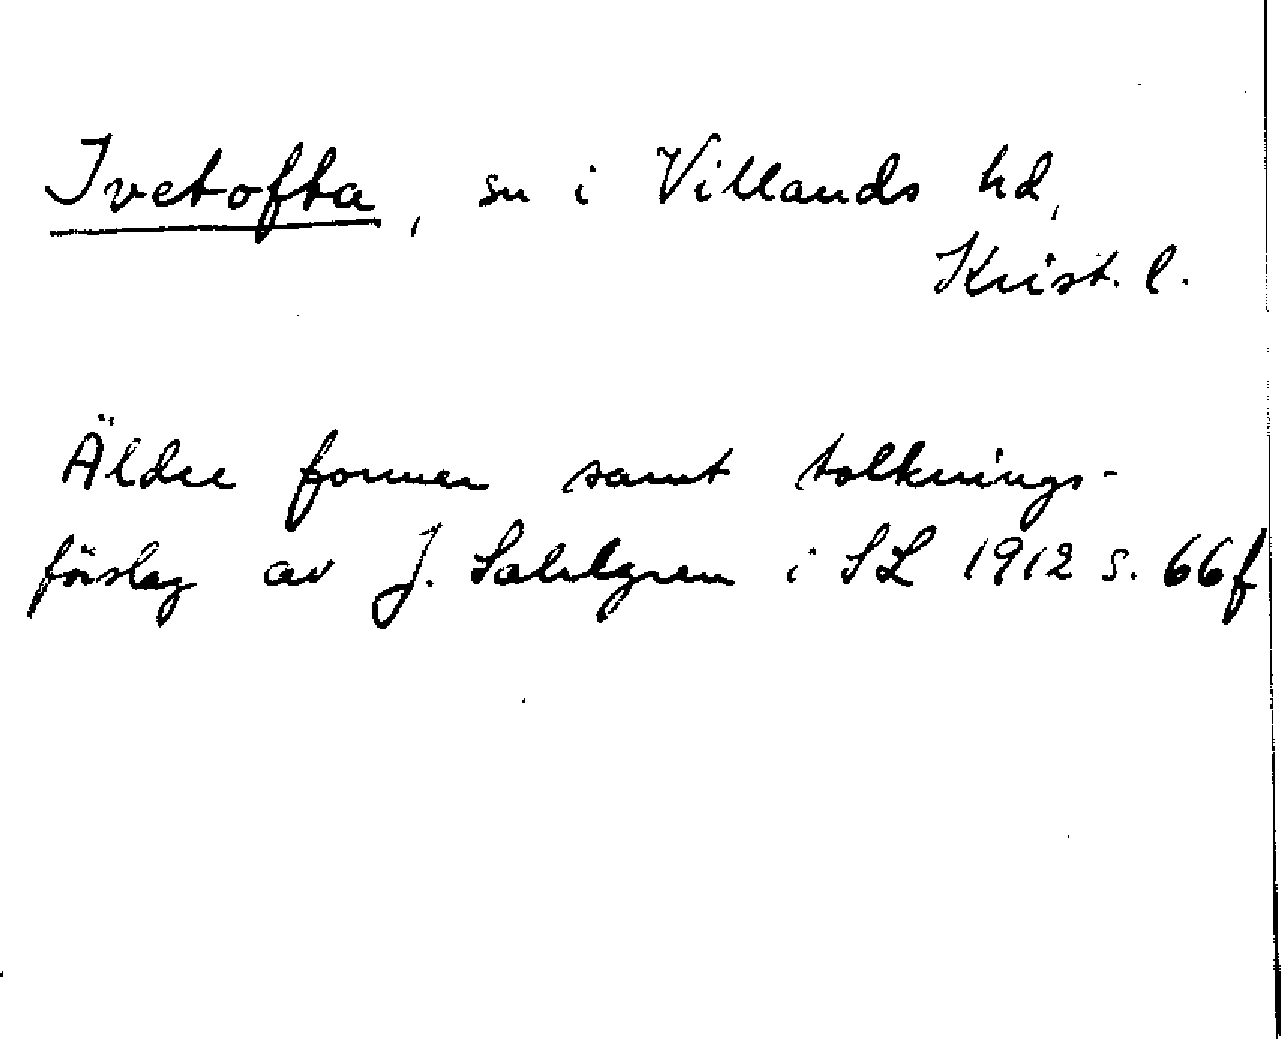 Ivetofta, sn i Villands hd,
Krist. l.
Äldre former samt tolknings-
förslag av J. Sahlgren i SL 1912 s. 66f